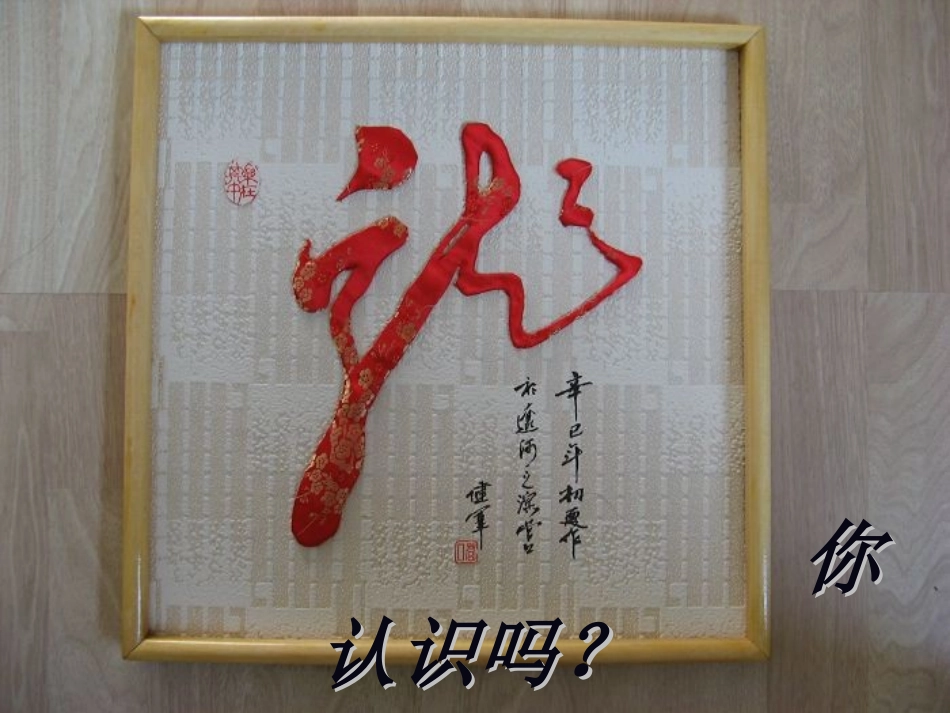 龙
辛巳年初夏作
於遼河之滨营口
健军
你
认识吗?